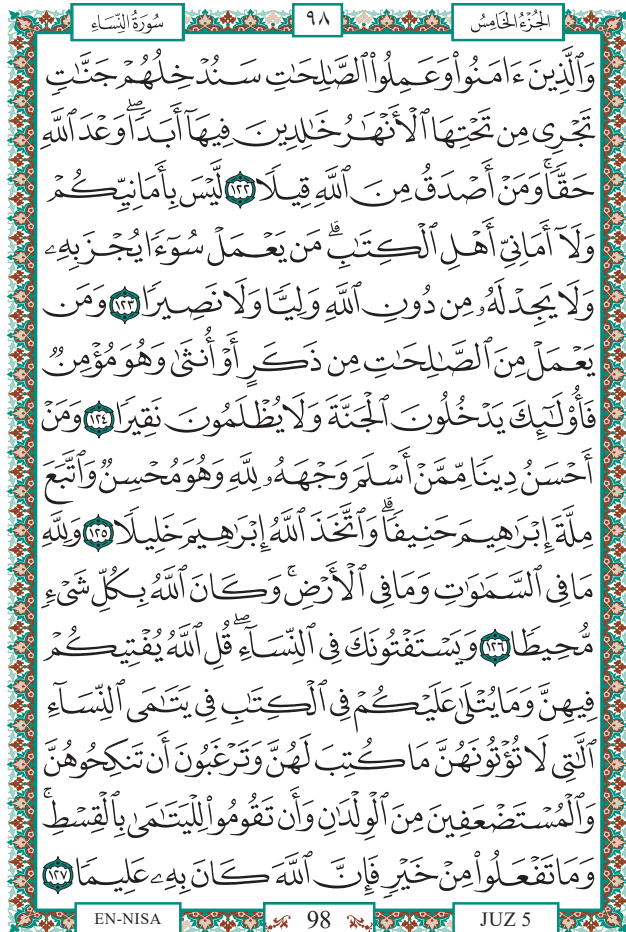 سُورَةُ النِّسَاءِ ٩٨ الجُزْءُ الخَامِسُ
وَٱلَّذِينَ ءَامَنُوا۟ وَعَمِلُوا۟ ٱلصَّٰلِحَٰتِ سَنُدْخِلُهُمْ جَنَّٰتٍ
تَجْرِى مِن تَحْتِهَا ٱلْأَنْهَٰرُ خَٰلِدِينَ فِيهَآ أَبَدًاۖ وَعْدَ ٱللَّهِ
حَقًّاۚ وَمَنْ أَصْدَقُ مِنَ ٱللَّهِ قِيلًا ١٢٢ لَّيْسَ بِأَمَانِيِّكُمْ
وَلَآ أَمَانِىِّ أَهْلِ ٱلْكِتَٰبِۗ مَن يَعْمَلْ سُوٓءًا يُجْزَ بِهِۦ
وَلَا يَجِدْ لَهُۥ مِن دُونِ ٱللَّهِ وَلِيًّا وَلَا نَصِيرًا ١٢٣ وَمَن
يَعْمَلْ مِنَ ٱلصَّٰلِحَٰتِ مِن ذَكَرٍ أَوْ أُنثَىٰ وَهُوَ مُؤْمِنٌ
فَأُو۟لَٰٓئِكَ يَدْخُلُونَ ٱلْجَنَّةَ وَلَا يُظْلَمُونَ نَقِيرًا ١٢٤ وَمَنْ
أَحْسَنُ دِينًا مِّمَّنْ أَسْلَمَ وَجْهَهُۥ لِلَّهِ وَهُوَ مُحْسِنٌ وَٱتَّبَعَ
مِلَّةَ إِبْرَٰهِيمَ حَنِيفًاۗ وَٱتَّخَذَ ٱللَّهُ إِبْرَٰهِيمَ خَلِيلًا ١٢٥ وَلِلَّهِ
مَا فِى ٱلسَّمَٰوَٰتِ وَمَا فِى ٱلْأَرْضِۚ وَكَانَ ٱللَّهُ بِكُلِّ شَىْءٍ
مُّحِيطًا ١٢٦ وَيَسْتَفْتُونَكَ فِى ٱلنِّسَآءِۖ قُلِ ٱللَّهُ يُفْتِيكُمْ
فِيهِنَّ وَمَا يُتْلَىٰ عَلَيْكُمْ فِى ٱلْكِتَٰبِ فِى يَتَٰمَى ٱلنِّسَآءِ
ٱلَّٰتِى لَا تُؤْتُونَهُنَّ مَا كُتِبَ لَهُنَّ وَتَرْغَبُونَ أَن تَنكِحُوهُنَّ
وَٱلْمُسْتَضْعَفِينَ مِنَ ٱلْوِلْدَٰنِ وَأَن تَقُومُوا۟ لِلْيَتَٰمَىٰ بِٱلْقِسْطِۚ
وَمَا تَفْعَلُوا۟ مِنْ خَيْرٍ فَإِنَّ ٱللَّهَ كَانَ بِهِۦ عَلِيمًا ١٢٧
EN-NISA 98 JUZ 5